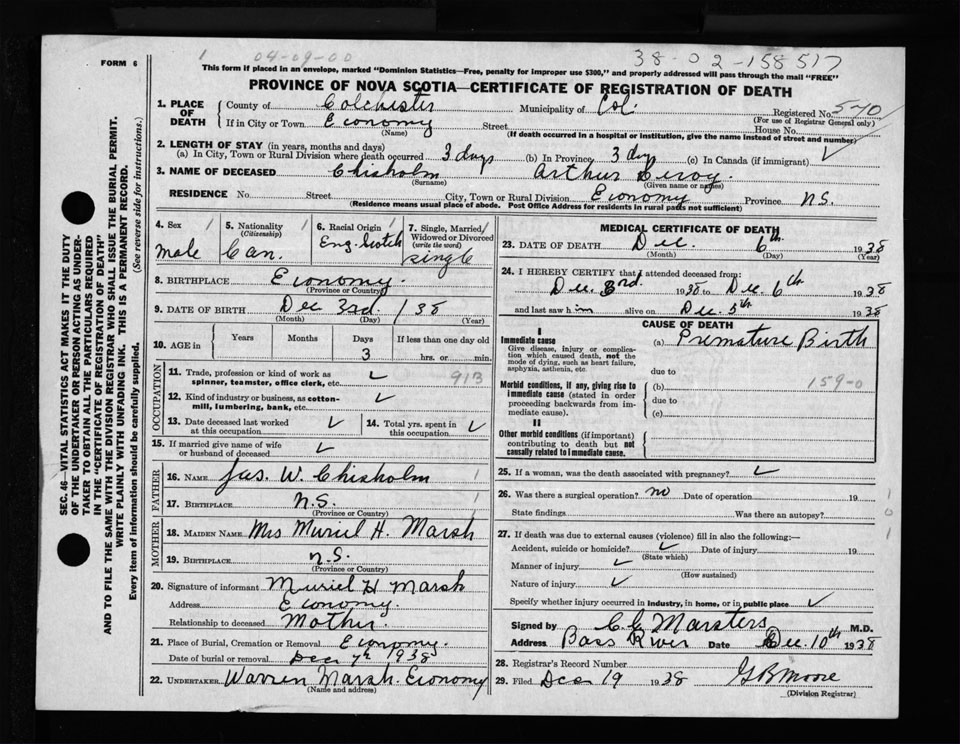 FORM 6
1 04-09-00 38-02-158517
This form if placed in an envelope, marked "Dominion Statistics—Free, penalty for improper use $300," and properly addressed will pass through the mail "FREE"
PROVINCE OF NOVA SCOTIA—CERTIFICATE OF REGISTRATION OF DEATH
1. PLACE OF DEATH County of Colchester Municipality of Col. Registered No. 570
(For use of Registrar General only)
If in City or Town Economy Street House No.
(Name) (If death occurred in a hospital or institution, give the name instead of street and number)
2. LENGTH OF STAY (in years, months and days)
(a) In City, Town or Rural Division where death occurred 3 days (b) In Province 3 days (c) In Canada (if immigrant)
3. NAME OF DECEASED Chisholm Arthur Leroy
(Surname) (Given name or names)
RESIDENCE No. Street City, Town or Rural Division Economy Province N.S.
(Residence means usual place of abode. Post Office Address for residents in rural parts not sufficient)
4. Sex male
5. Nationality (Citizenship) Can.
6. Racial Origin Eng-Scotch
7. Single, Married, Widowed or Divorced (write the word) single
8. BIRTHPLACE Economy
(Province or Country)
9. DATE OF BIRTH Dec 3rd 1938
(Month) (Day) (Year)
10. AGE in Years Months Days 3 If less than one day old hrs. or min.
OCCUPATION
11. Trade, profession or kind of work as spinner, teamster, office clerk, etc. 913
12. Kind of industry or business, as cotton-mill, lumbering, bank, etc.
13. Date deceased last worked at this occupation
14. Total yrs. spent in this occupation
15. If married give name of wife or husband of deceased
FATHER
16. NAME Jas. W. Chisholm
17. BIRTHPLACE N.S.
(Province or Country)
MOTHER
18. MAIDEN NAME Mrs Muriel H. Marsh
19. BIRTHPLACE N.S.
(Province or Country)
20. Signature of informant Muriel H Marsh
Address Economy.
Relationship to deceased Mother
21. Place of Burial, Cremation or Removal Economy
Date of burial or removal Dec 7th 1938
22. UNDERTAKER Warren Marsh. Economy
(Name and address)
MEDICAL CERTIFICATE OF DEATH
23. DATE OF DEATH Dec. 6th 1938
(Month) (Day) (Year)
24. I HEREBY CERTIFY that I attended deceased from:
Dec. 3rd. 1938 to Dec. 6th 1938
and last saw him alive on Dec. 5th 1938
CAUSE OF DEATH
I
Immediate cause
Give disease, injury or complication which caused death, not the mode of dying, such as heart failure, asphyxia, asthenia, etc.
(a) Premature Birth
due to
Morbid conditions, if any, giving rise to immediate cause (stated in order proceeding backwards from immediate cause).
(b) 159-0
due to
(c)
II
Other morbid conditions (if important) contributing to death but not causally related to immediate cause.
25. If a woman, was the death associated with pregnancy?
26. Was there a surgical operation? no Date of operation 19
State findings Was there an autopsy?
27. If death was due to external causes (violence) fill in also the following:—
Accident, suicide or homicide? Date of injury 19
(State which)
Manner of injury
(How sustained)
Nature of injury
Specify whether injury occurred in industry, in home, or in public place
Signed by C C Marsters M.D.
Address Bass River Date Dec. 10th 1938
28. Registrar's Record Number
29. Filed Dec 19 1938 G B Moore
(Division Registrar)
SEC. 46—VITAL STATISTICS ACT MAKES IT THE DUTY
OF THE UNDERTAKER OR PERSON ACTING AS UNDER-
TAKER TO OBTAIN ALL THE PARTICULARS REQUIRED
IN THE "CERTIFICATE OF REGISTRATION OF DEATH"
AND TO FILE THE SAME WITH THE DIVISION REGISTRAR WHO SHALL ISSUE THE BURIAL PERMIT.
WRITE PLAINLY WITH UNFADING INK. THIS IS A PERMANENT RECORD.
Every item of information should be carefully supplied. (See reverse side for instructions.)